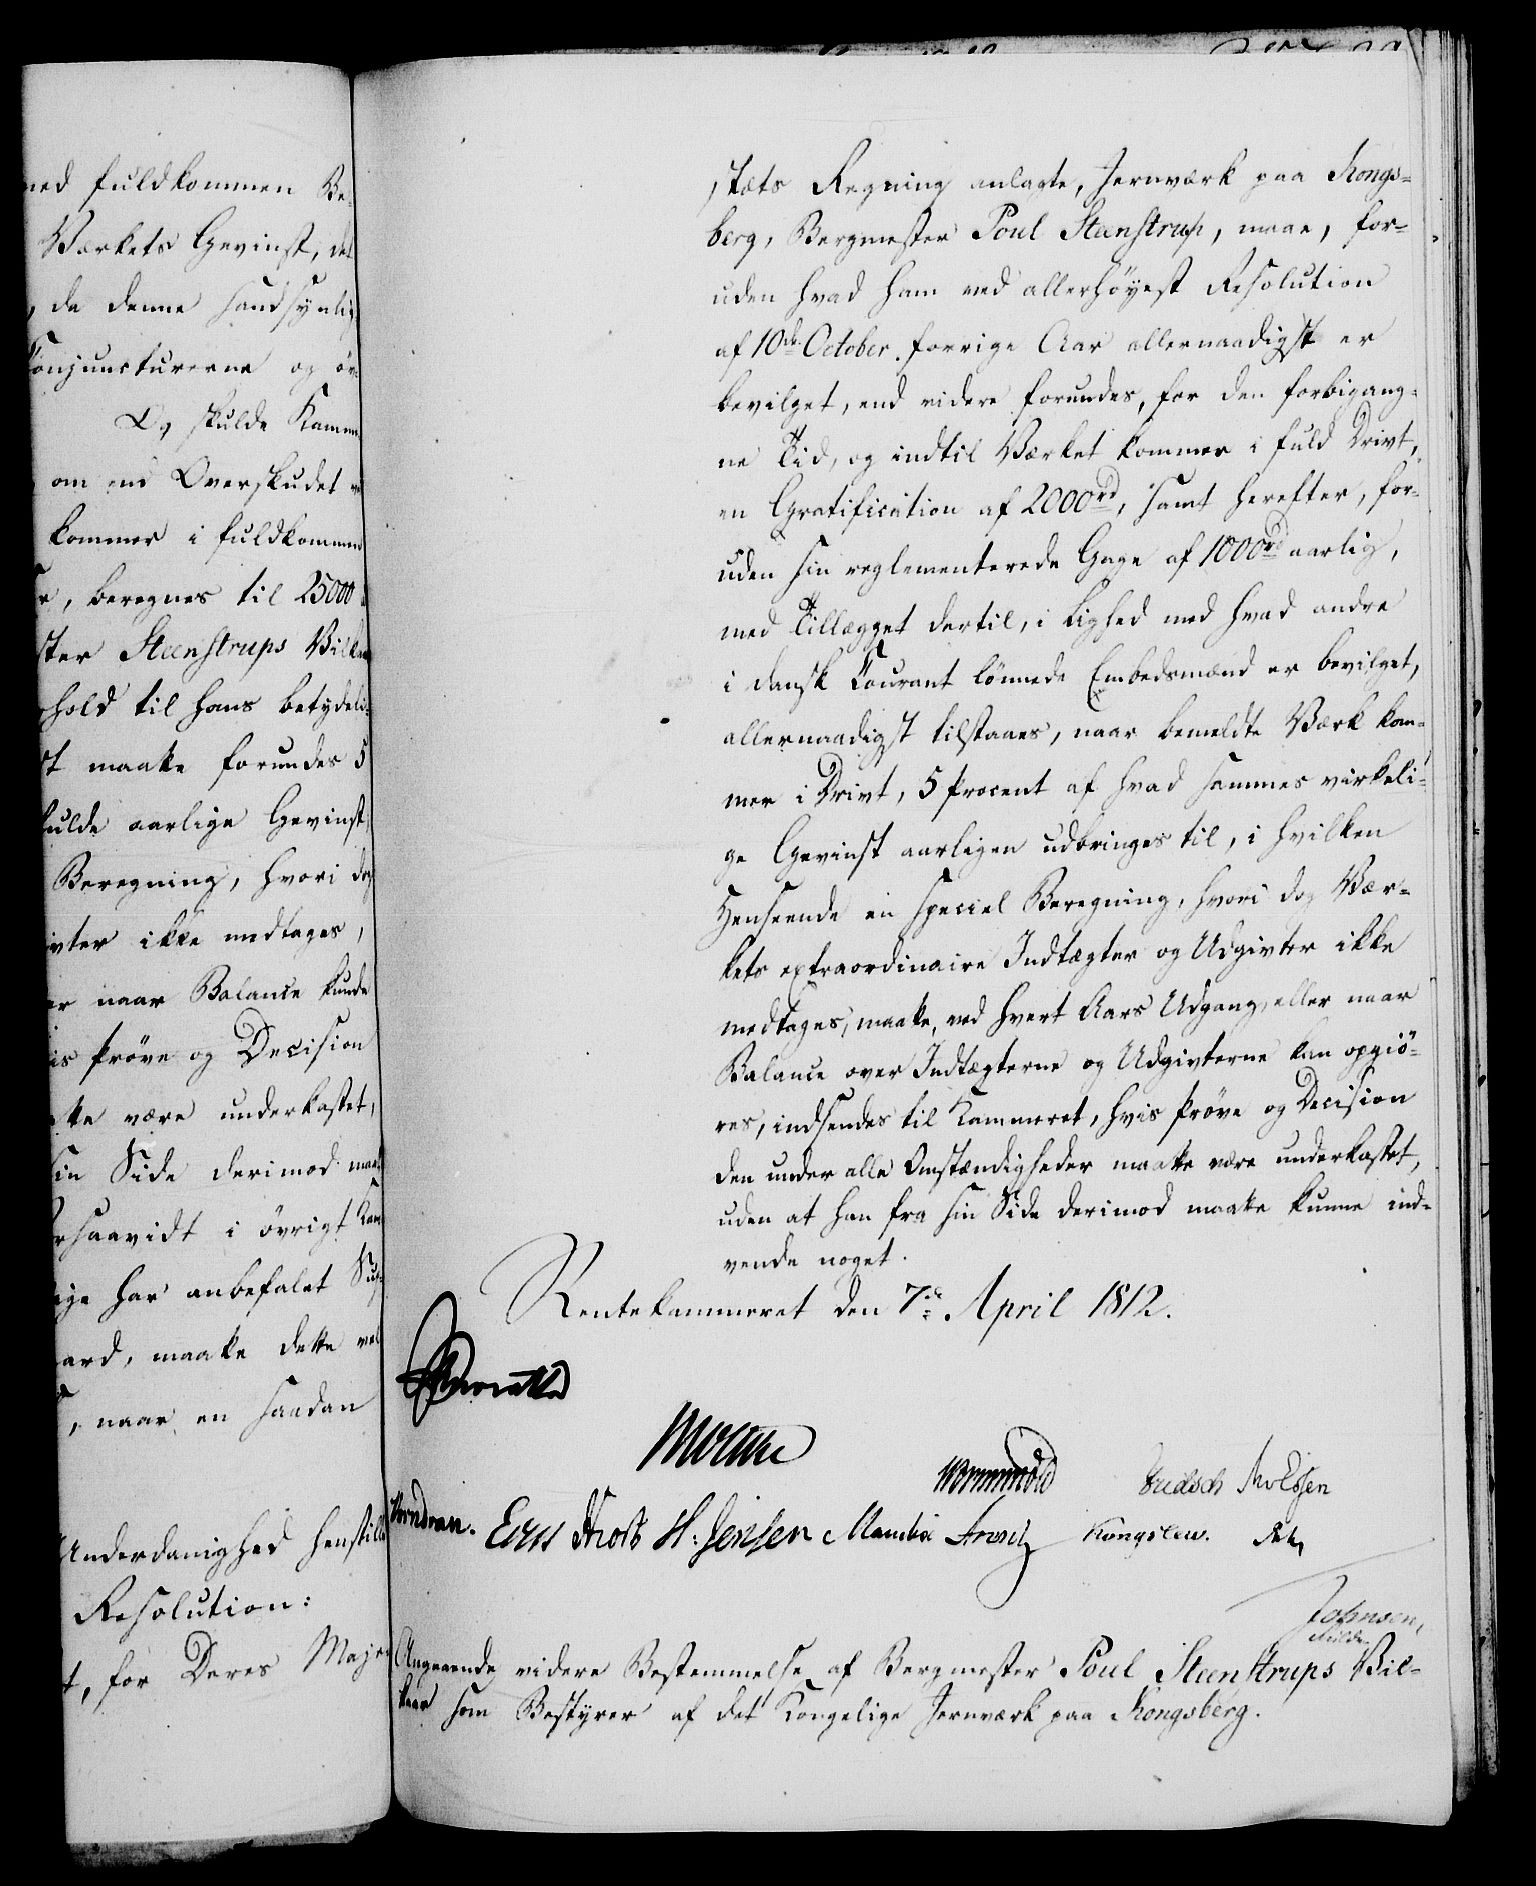 ned fuldkommen Be-
Værkets Gevinst, det
, da denne sandsynlig
Conjuncturerne og öv-
Og skulde Kamme
om end Overskudet
kommer i fuldkommen
, beregnes til 25000
ster Steenstrups Vilkaar
hold til hans betydeli-
st maatte forundes 5
fulde aarlige Gevinst,
Beregning, hvori dog
ivter ikke medtages,
er naar Balance kunde
is Prøve og Decision
tte være underkastet,
sin Side derimod maatte
rsaavidt i övrigt Kam
ige har anbefalet Sup-
ard, maatte dette vel
, naar en saadan
Underdanighed henstille
Resolution:
t, for Deres Maje
stæts Regning anlagte, Jernværk paa Kongs-
berg, Bergmester Poul Steenstrup, maae, for-
uden hvad ham ved allerhöyest Resolution
af 10de October forrige Aar allernaadigst er
bevilget, end videre forundes, for den forbigang-
ne Tid, og indtil Værket kommer i fuld Drivt,
en Gratification af 2000rd, samt herefter, for-
uden sin reglementerede Gage af 1000rd aarlig,
med Tillægget dertil, i Lighed med hvad andre
i dansk Courant lönnede Embedsmænd er bevilget,
allernaadigst tilstaaes, naar bemeldte Værk kom-
mer i Drivt, 5 Procent af hvad sammes virkeli-
ge Gevinst aarligen udbringes til, i hvilken
Henseende en special Beregning, hvori dog Vær-
kets extraordinaire Indtægter og Udgivter ikke
medtages, maatte, ved hvert Aars Udgang, eller naar
Balance over Indtægterne og Udgivterne kan opgiö-
res, indsendes til Kammeret, hvis Prøve og Decision
den under alle Omstændigheder maatte være underkastet,
uden at han fra sin Side derimod maatte kunne ind-
vende noget.
Rentekammeret den 7de April 1812.
Wormskiold
H: Jensen Kongslew.
Johnsen,
Angaaende videre Bestemmelse af Bergmester Poul Steenstrups Vil-
kaar som Bestyrer af det Kongelige Jernværk paa Kongsberg.